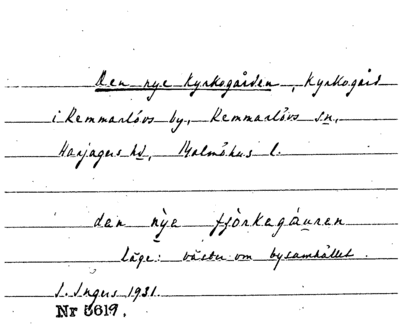 Den nye Kyrkogården, Kyrkogård
i Remmarlövs by, Remmarlövs sn,
Harjagers hd, Malmöhus l.
dan nỳe fjörkagáuren
läge: väster om bysamhället.
I. Ingers 1931.
Nr 5619.